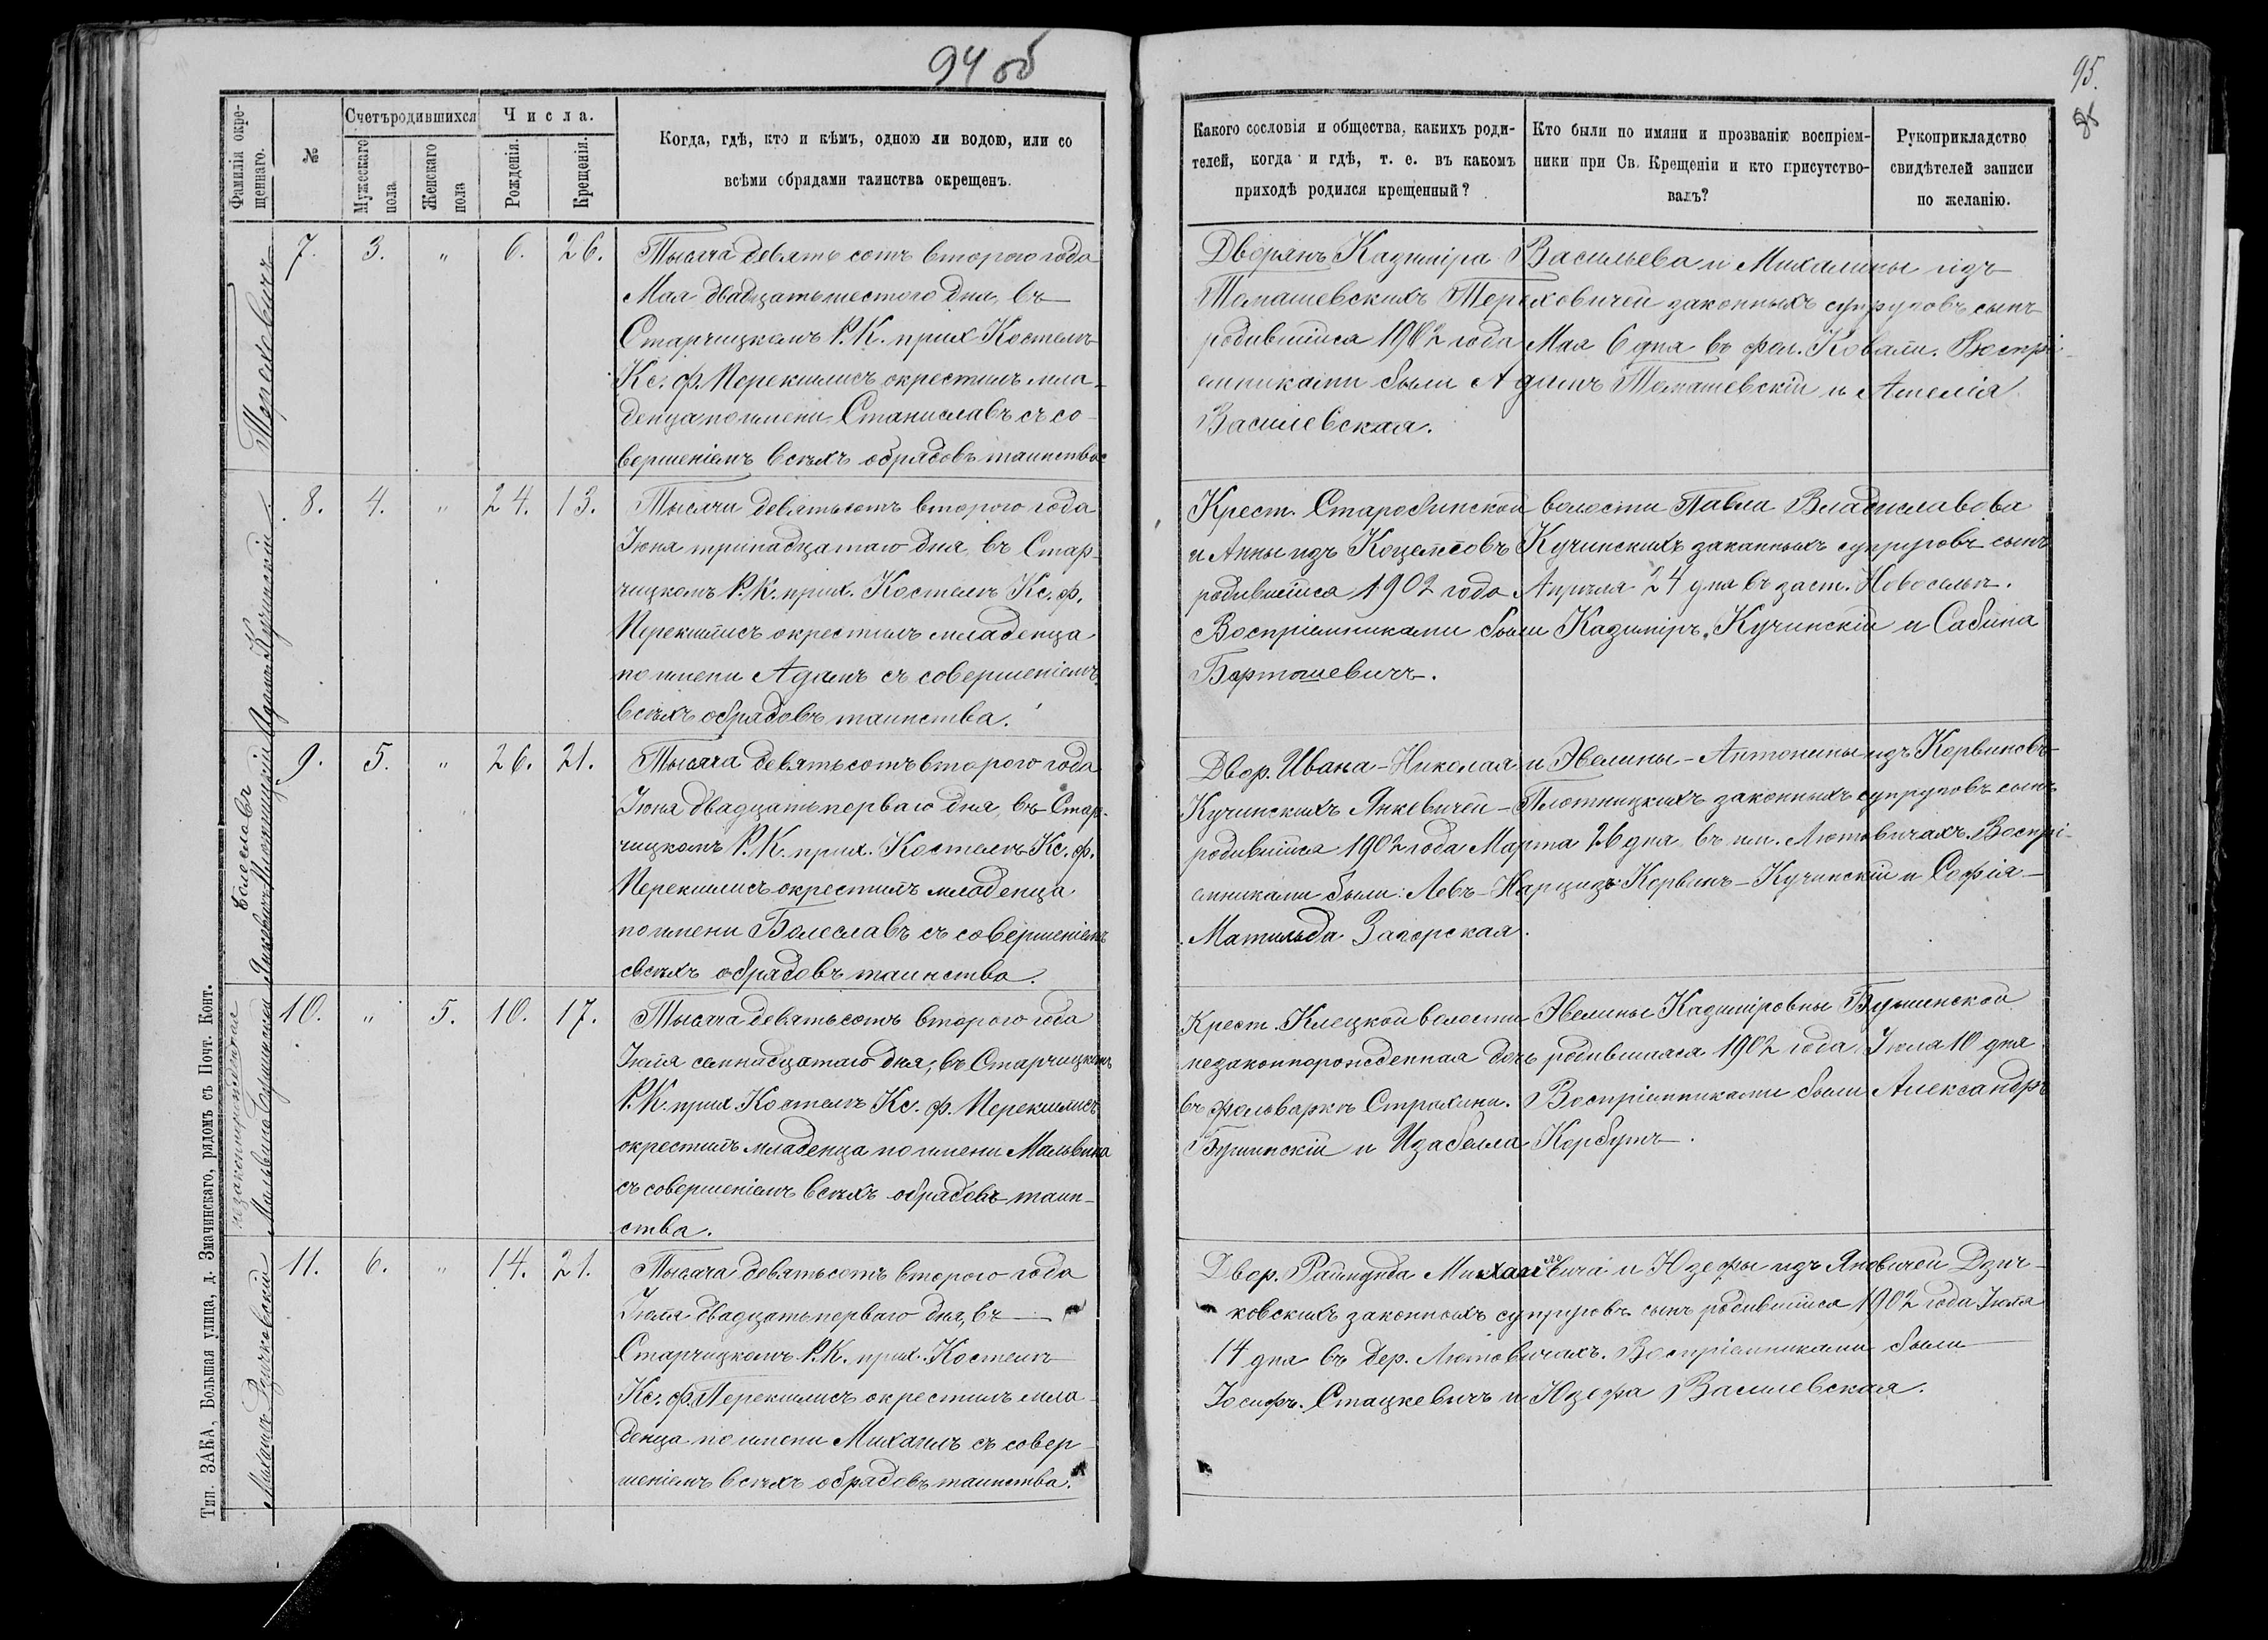 94 об
95.
Фамилія окре-
щеннаго.
№
Счетъ родившихся
Мужескаго
пола
Женскаго
пола
Числа.
Рожденія.
Крещенія.
Когда, гдѣ, кто и кѣмъ, одною ли водою, или со
всѣми обрядами таинства окрещенъ.
Какого сословія и общества, какихъ роди-
телей, когда и гдѣ, т. е. въ какомъ
приходѣ родился крещенный?
Кто были по имяни и прозванію воспріем-
ники при Св. Крещеніи и кто присутство-
валъ?
Рукоприкладство
свидѣтелей записи
по желанію.
Тераховичъ
7. 3. " 6. 26.
Тысяча девятьсотъ второго года
Мая двадцатьшестого дня, въ
Старчицкомъ Р.К. прих Костелѣ
Кс. ф. Перекшлисъ окрестилъ мла-
денца по имени Станиславъ съ со-
вершеніемъ всѣхъ обрядовъ таинства
Дворянъ Казиміра Васильева и Михалины изъ
Томашевскихъ Тераховичей законныхъ супруговъ сынъ
родившійся 1902 года Мая 6 дня въ фол. Ковали. Воспрі-
емниками были Адамъ Томашевскій и Амелія
Василевская.
Адамъ Кучинскій
8. 4. " 24. 13.
Тысяча девятьсотъ второго года
Іюня тринадцатаго дня, въ Стар-
чицкомъ Р.К. прих. Костелѣ Кс. ф.
Перекшлисъ окрестилъ младенца
по имени Адамъ съ совершеніемъ
всѣхъ обрядовъ таинства.
Крест. Старобинской волости Павла Владиславова
и Анны изъ Кучинскихъ законныхъ супруговъ сынъ
родившійся 1902 года Апрѣля 24 дня въ заст. Новоселы.
Воспріемниками были Казиміръ Кучинскій и Сабина
Бартошевичъ.
Болеславъ
Янкевичъ-Плотницкій
9. 5. " 26. 21.
Тысяча девятьсотъ второго года
Іюня двадцатьперваго дня, въ Стар-
чицкомъ Р.К. прих. Костелѣ Кс. ф.
Перекшлисъ окрестилъ младенца
по имени Болеславъ съ совершеніемъ
всѣхъ обрядовъ таинства.
Двор. Ивана-Николая и Эвелины-Антонины изъ Корвиновъ
Кучинскихъ Янкевичей-Плотницкихъ законныхъ супруговъ сынъ
родившійся 1902 года Марта 26 дня въ им. Лютовичахъ. Воспрі-
емниками были: Левъ-Нарцизъ Корвинъ-Кучинскій и Софія-
Матильда Загорская.
незаконнорожденная
Мальвина
10. " 5. 10. 17.
Тысяча девятьсотъ второго года
Іюля семнадцатаго дня, въ Старчицкомъ
Р.К. прих. Костелѣ Кс. ф. Перекшлисъ
окрестилъ младенца по имени Мальвина
съ совершеніемъ всѣхъ обрядовъ таин-
ства.
Крест. Клецкой волости Эвелины Казиміровны
незаконнорожденная дочь родившаяся 1902 года Іюля 10 дня
въ фольваркѣ Страхини. Воспріемниками были Александръ
и Изабелла Корбутъ.
Михаилъ Дзичковскій
11. 6. " 14. 21.
Тысяча девятьсотъ второго года
Іюля двадцатьперваго дня, въ
Старчицкомъ Р.К. прих. Костелѣ
Кс. ф. Перекшлисъ окрестилъ мла-
денца по имени Михаилъ съ совер-
шеніемъ всѣхъ обрядовъ таинства.
Двор. Раймунда Михайловича и Юзефы изъ Яновичей Дзич-
ковскихъ законныхъ супруговъ сынъ родившійся 1902 года Іюля
14 дня въ дер. Лютовичахъ. Воспріемниками были
Іосифъ Стацкевичъ и Юзефа Василевская.
Тип. ЗАКА, Большая улица, д. Змачинскаго, рядомъ съ Почт. Конт.